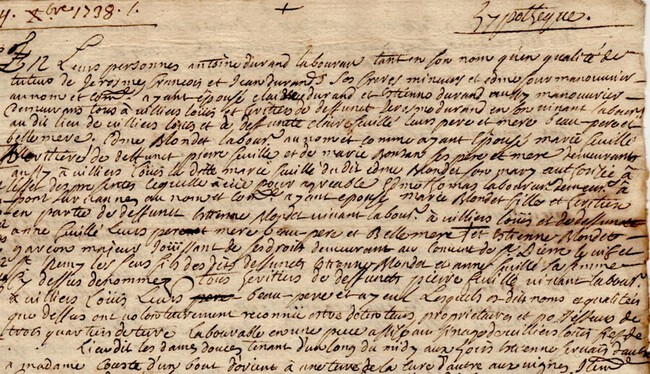 4. Xbre 1738. /. Hypotheque.
Leurs personnes antoine durand laboureur tant en son nom qu'en qualité de
tuteur de Jerosme francois et Jean durand ses freres mineurs et edme manouvrier
au nom et comme ayant épousé durand et Estienne durand aussy manouvrier
demeurans tous à villiers Louis et heritiers de deffunct Jerosme durand en son vivant labour
au dit lieu de villiers Louis et de deffuncte claire feuillé leurs pere et mere beau pere et
belle mere, Edme Blondet labour au nom et comme ayant épousé marie feuillé
heritiere de deffunct pierre feuillé et de marie ses pere et mere demeurants
aussy à villiers Louis la ditte marie feuillé du dit edme Blondet son mary autorisée à
l'effet des presentes laquelle a eue pour agreable Edme laboureur demeur à
pont sur vannes au nom et comme ayant epousé marie Blondet fille et heritiere
en partie de deffunct Estienne Blondet vivant labour à villiers Louis et de deffuncte
anne feuillé leurs pere et mere beau pere et Belle mere, et Estienne Blondet
garcon majeur Jouissant de ses droits demeurant au Convent de St Pierre le vif et
St Remy les Sens fils des dits deffuncts Estienne Blondet et anne feuillé
cy dessus denommez tous heritiers de deffunct pierre feuillé vivant labour
à villiers Louis Leurs pere beau pere et ayeul Lesquels es dits noms et qualitéz
que dessus ont volontairement reconnu estre detempteurs, proprietaires et possesseurs de
trois quartiers de terre labourable en une piece assise au finage de villiers Louis
Lieudit les dames douces tenant d'un long du midy aux hoirs Estienne d'autre
à madame d'un bout d'orient à une terre de la cure d'autre aux vignes, Item